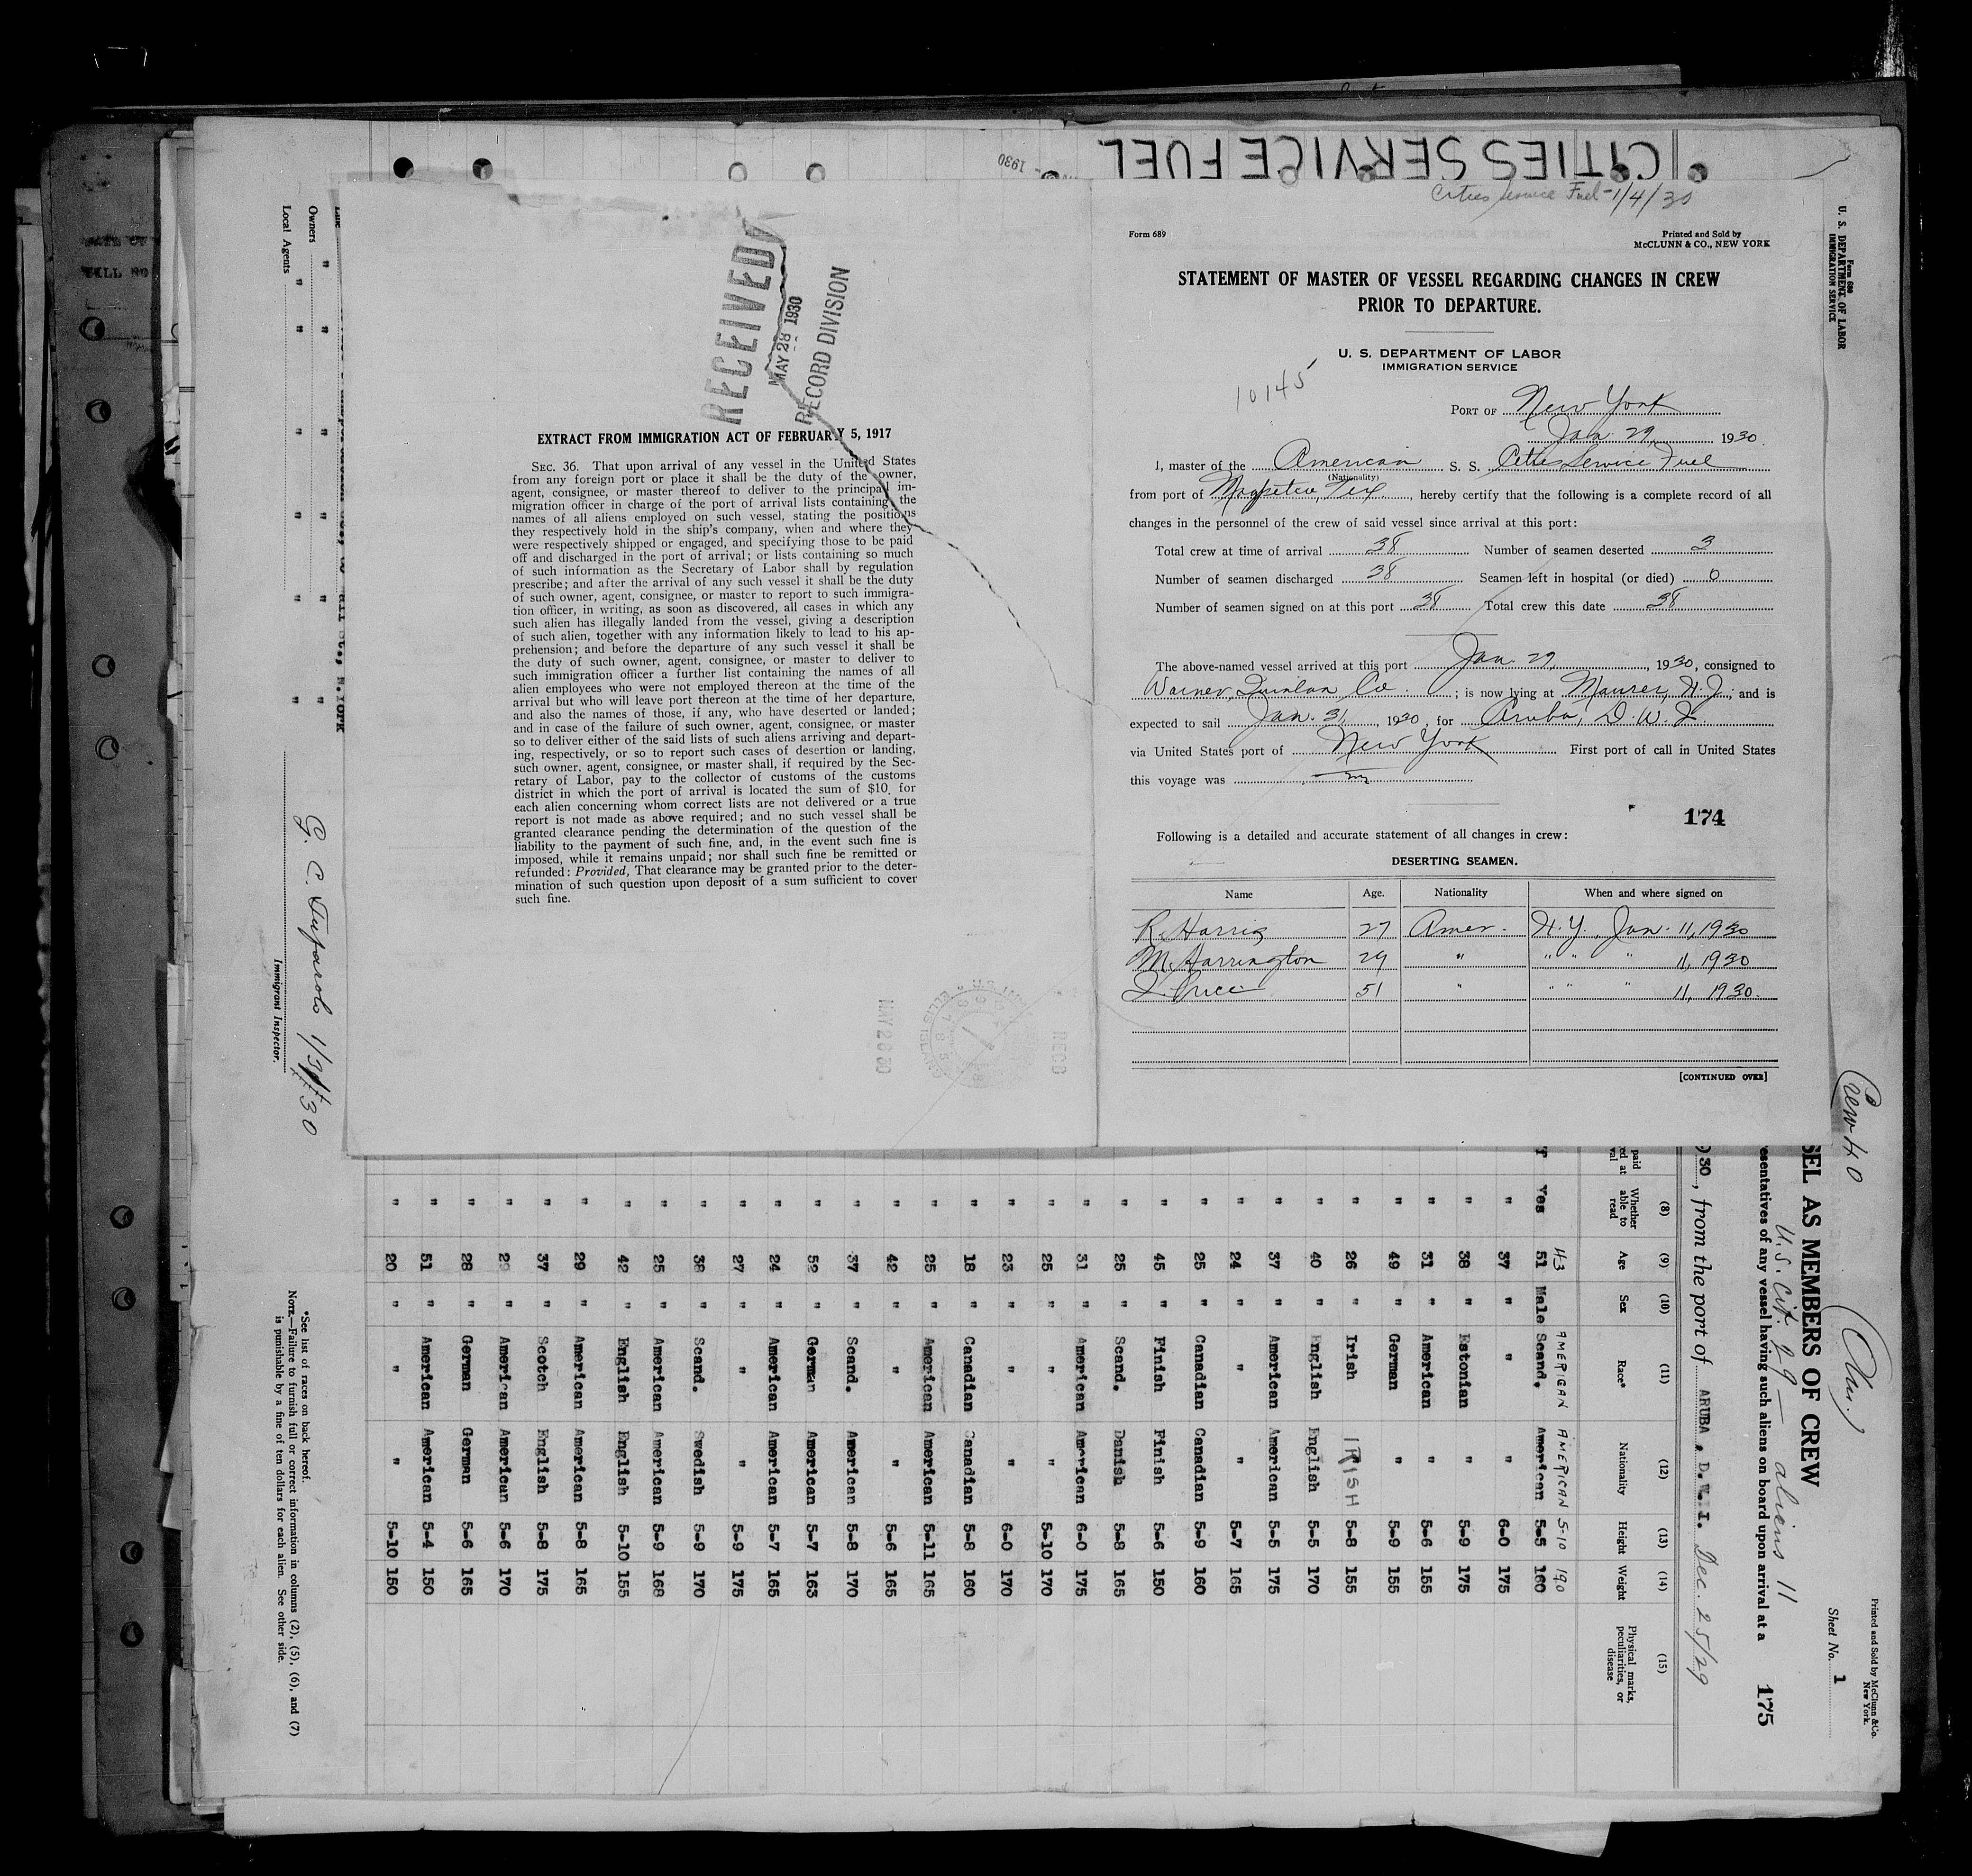 CITIES SERVICE FUEL
Cities Service Fuel - 1/4/30
Form 689
Printed and Sold by
McCLUNN & CO., NEW YORK
STATEMENT OF MASTER OF VESSEL REGARDING CHANGES IN CREW
PRIOR TO DEPARTURE.
U. S. DEPARTMENT OF LABOR
IMMIGRATION SERVICE
10145
PORT OF New York
Jan. 29, 1930.
I, master of the American S. S. Cities Service Fuel
(Nationality)
from port of Tex, hereby certify that the following is a complete record of all
changes in the personnel of the crew of said vessel since arrival at this port:
Total crew at time of arrival 38 Number of seamen deserted 3
Number of seamen discharged 38 Seamen left in hospital (or died) 0
Number of seamen signed on at this port 38 Total crew this date 38
The above-named vessel arrived at this port Jan. 29, 1930, consigned to
Warner, Quinlan Co. ; is now lying at Maurer, N. J.; and is
expected to sail Jan. 31, 1930, for Aruba, D. W. I.
via United States port of New York First port of call in United States
this voyage was
174
Following is a detailed and accurate statement of all changes in crew:
DESERTING SEAMEN.
Name Age. Nationality When and where signed on
R. Harris 27 Amer. N. Y. Jan. 11, 1930
M. Harrington 29 " " " " 11, 1930
51 " " " " 11, 1930.
[CONTINUED OVER]
RECEIVED
MAY 28 1930
RECORD DIVISION
EXTRACT FROM IMMIGRATION ACT OF FEBRUARY 5, 1917
SEC. 36. That upon arrival of any vessel in the United States
from any foreign port or place it shall be the duty of the owner,
agent, consignee, or master thereof to deliver to the principal im-
migration officer in charge of the port of arrival lists containing the
names of all aliens employed on such vessel, stating the positions
they respectively hold in the ship's company, when and where they
were respectively shipped or engaged, and specifying those to be paid
off and discharged in the port of arrival; or lists containing so much
of such information as the Secretary of Labor shall by regulation
prescribe; and after the arrival of any such vessel it shall be the duty
of such owner, agent, consignee, or master to report to such immigra-
tion officer, in writing, as soon as discovered, all cases in which any
such alien has illegally landed from the vessel, giving a description
of such alien, together with any information likely to lead to his ap-
prehension; and before the departure of any such vessel it shall be
the duty of such owner, agent, consignee, or master to deliver to
such immigration officer a further list containing the names of all
alien employees who were not employed thereon at the time of the
arrival but who will leave port thereon at the time of her departure,
and also the names of those, if any, who have deserted or landed;
and in case of the failure of such owner, agent, consignee, or master
so to deliver either of the said lists of such aliens arriving and depart-
ing, respectively, or so to report such cases of desertion or landing,
such owner, agent, consignee, or master shall, if required by the Sec-
retary of Labor, pay to the collector of customs of the customs
district in which the port of arrival is located the sum of $10. for
each alien concerning whom correct lists are not delivered or a true
report is not made as above required; and no such vessel shall be
granted clearance pending the determination of the question of the
liability to the payment of such fine, and, in the event such fine is
imposed, while it remains unpaid; nor shall such fine be remitted or
refunded: Provided, That clearance may be granted prior to the deter-
mination of such question upon deposit of a sum sufficient to cover
such fine.
MAY 28 30
REC'D
Form 680
U. S. DEPARTMENT OF LABOR
IMMIGRATION SERVICE
Crew 40
Printed and Sold by McClunn & Co.
New York.
Sheet No. 1
SEL AS MEMBERS OF CREW
U.S. Cit 29 — aliens 11
esentatives of any vessel having such aliens on board upon arrival at a 175
30, from the port of ARUBA, D.W.I. Dec. 25/29
(8) (9) (10) (11) (12) (13) (14) (15)
Whether able to read Age Sex Race* Nationality Height Weight Physical marks, peculiarities, or disease
43 AMERICAN AMERICAN 5-10 190
Yes 51 Male Scand. American 5-5 160
" 37 " " " 6-0 175
" 38 " Estonian " 5-9 175
" 31 " American " 5-6 155
" 49 " German " 5-9 155
" 26 " Irish IRISH 5-8 155
" 40 " English English 5-5 170
" 37 " American American 5-5 175
" 24 " " " 5-7 165
" 25 " Canadian Canadian 5-9 160
" 45 " Finish Finish 5-6 150
" 25 " Scand. Danish 5-8 165
" 31 " American American 6-0 175
" 25 " " " 5-10 170
" 23 " " " 6-0 170
" 18 " Canadian Canadian 5-8 160
" 25 " American American 5-11 165
" 42 " " " 5-6 165
" 37 " Scand. American 5-8 170
" 52 " German American 5-7 163
" 24 " American American 5-7 165
" 27 " " " 5-9 175
" 38 " Scand. Swedish 5-9 170
" 25 " American American 5-9 168
" 42 " English English 5-10 155
" 29 " American American 5-8 165
" 37 " Scotch English 5-8 175
" 29 " American American 5-6 170
" 28 " German German 5-6 165
" 51 " American American 5-4 150
" 20 " " " 5-10 150
*See list of races on back hereof.
NOTE.—Failure to furnish full or correct information in columns (2), (5), (6), and (7)
is punishable by a fine of ten dollars for each alien. See other side.
Owners "
Local Agents "
N.YORK
Immigrant Inspector.